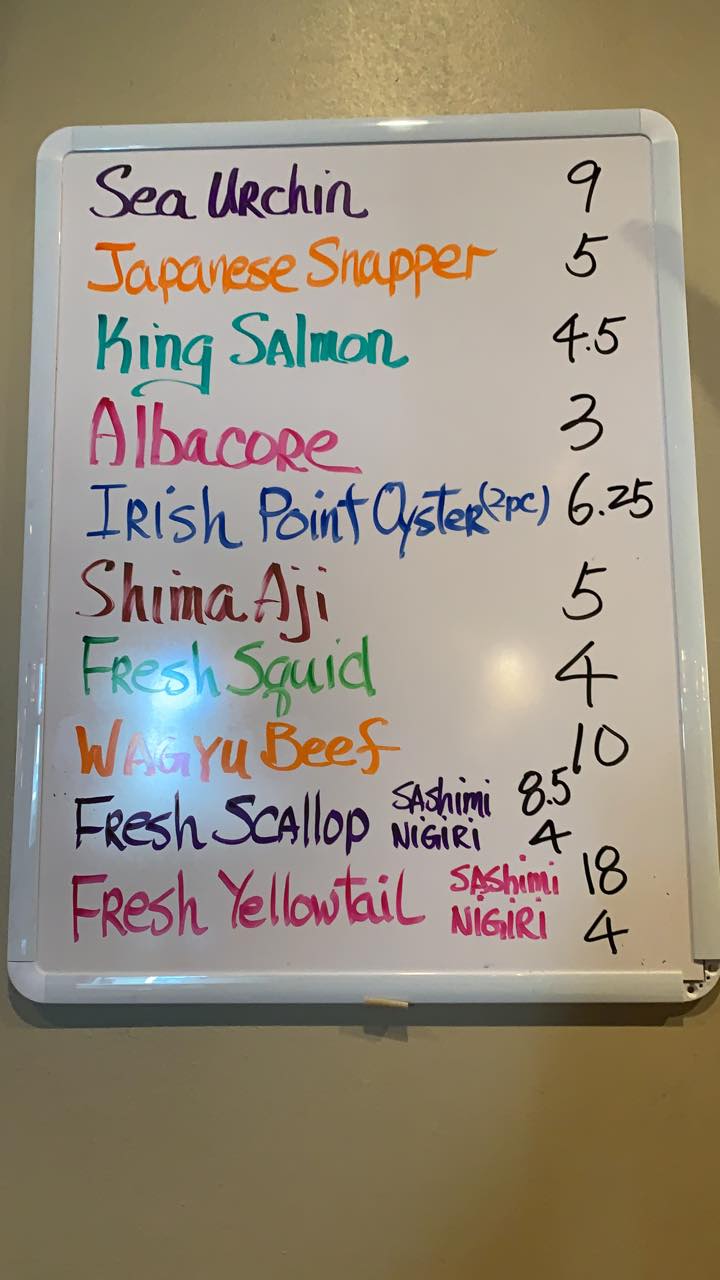 Sea Urchin 9
Japanese Snapper 5
King Salmon 4.5
Albacore 3
Irish Point Oyster (2pc) 6.25
Shima Aji 5
Fresh Squid 4
Wagyu Beef 10
Fresh Scallop Sashimi 8.5
Nigiri 4
Fresh Yellowtail Sashimi 18
Nigiri 4